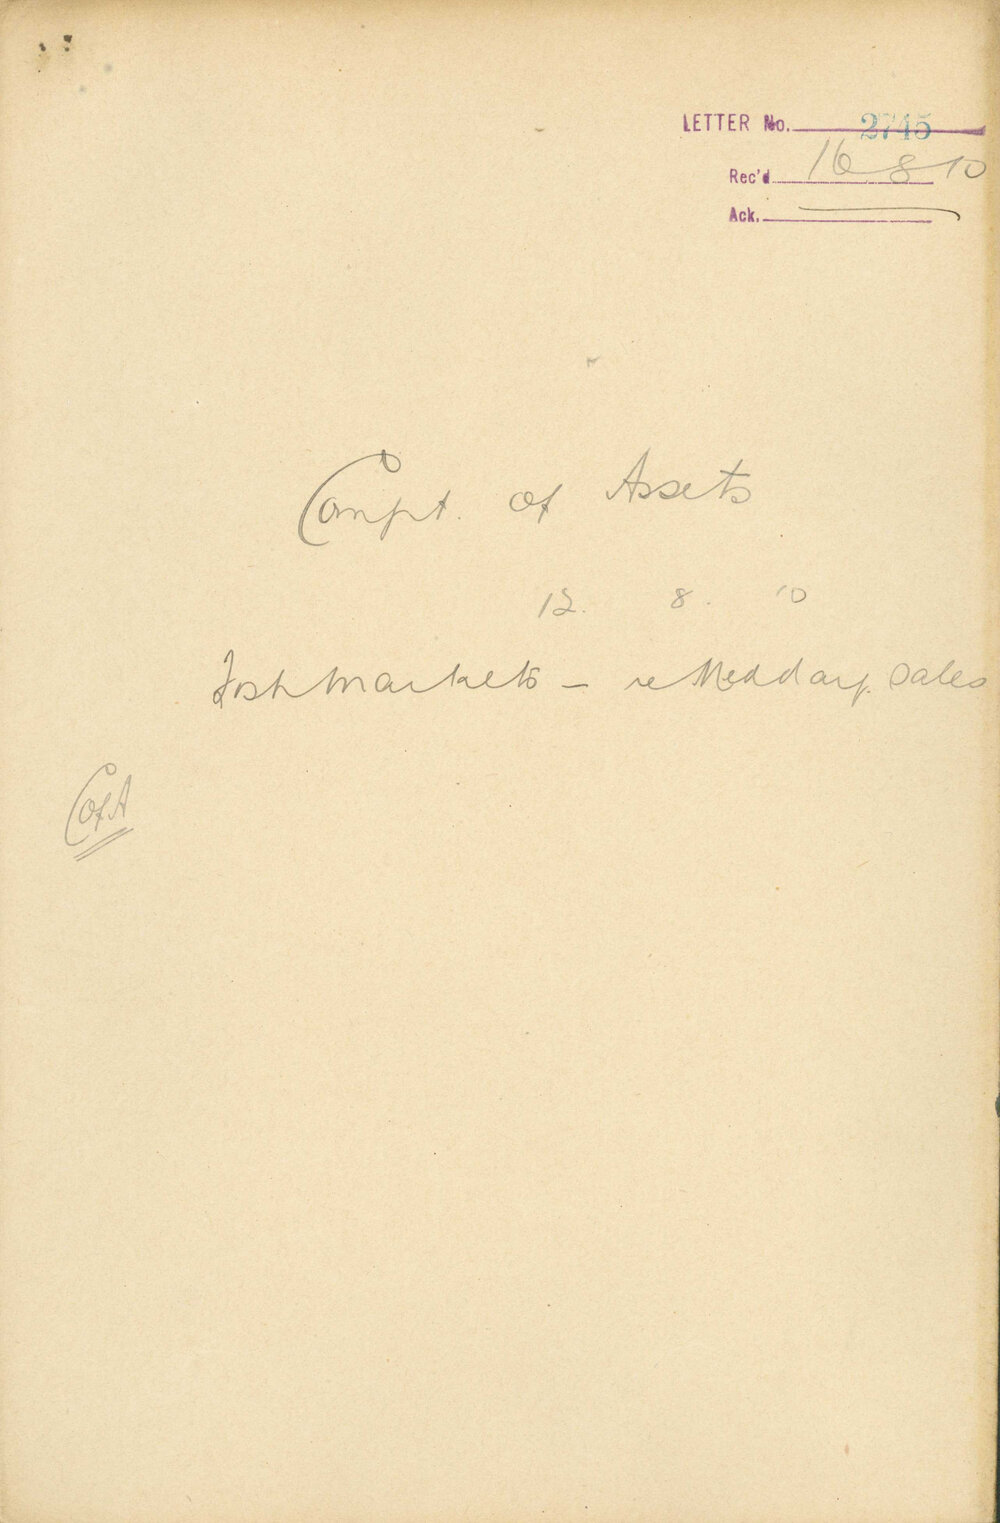 LETTER No. 2745
Rec'd 16 8 10
Ack.
Compt. of Assets
12. 8. 10
Fish Markets - re Medday. Sales
C of A